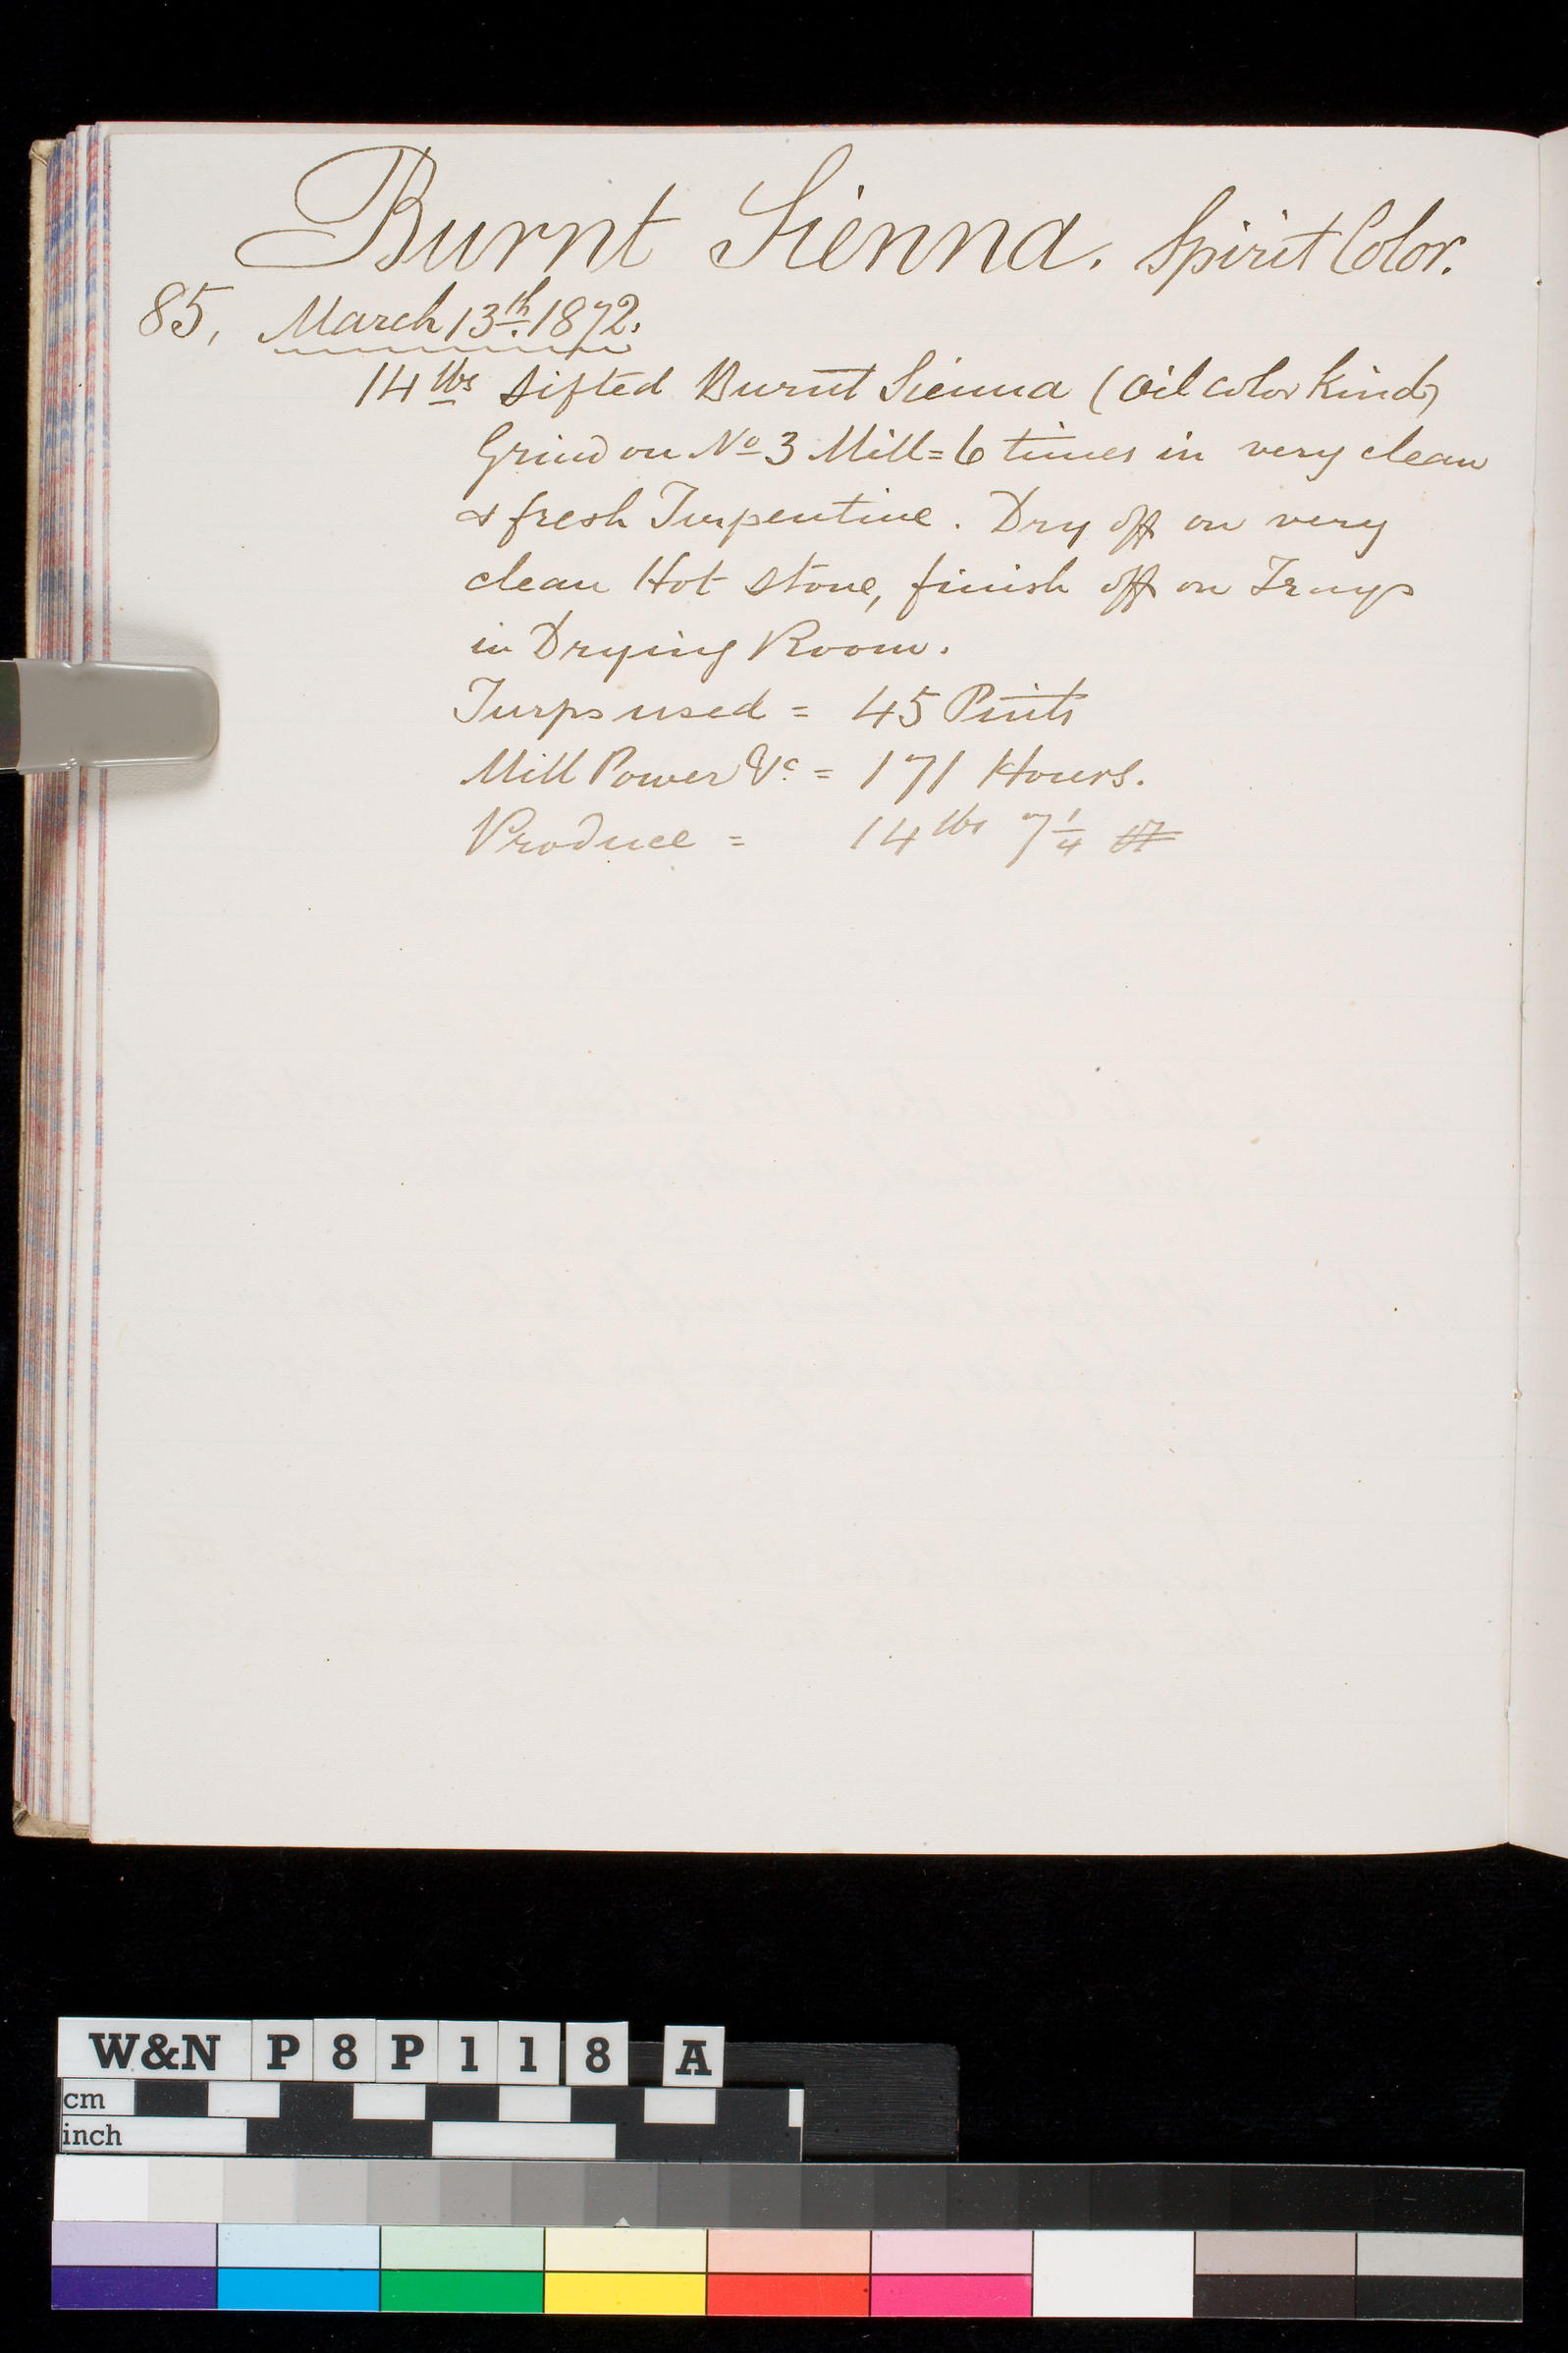 Burnt Sienna. Spirit Color.
85, March 13th. 1872.
14 lbs sifted Burnt Sienna (oil color kind)
Grind on No 3 Mill = 6 times in very clean
& fresh Turpentine. Dry off on very
clean Hot stone, finish off on Trays
in Drying Room.
Turps used = 45 Pints
Mill Power &c = 171 Hours.
Produce = 14 lbs 7 1/4
W&N P8P118 A
cm
inch